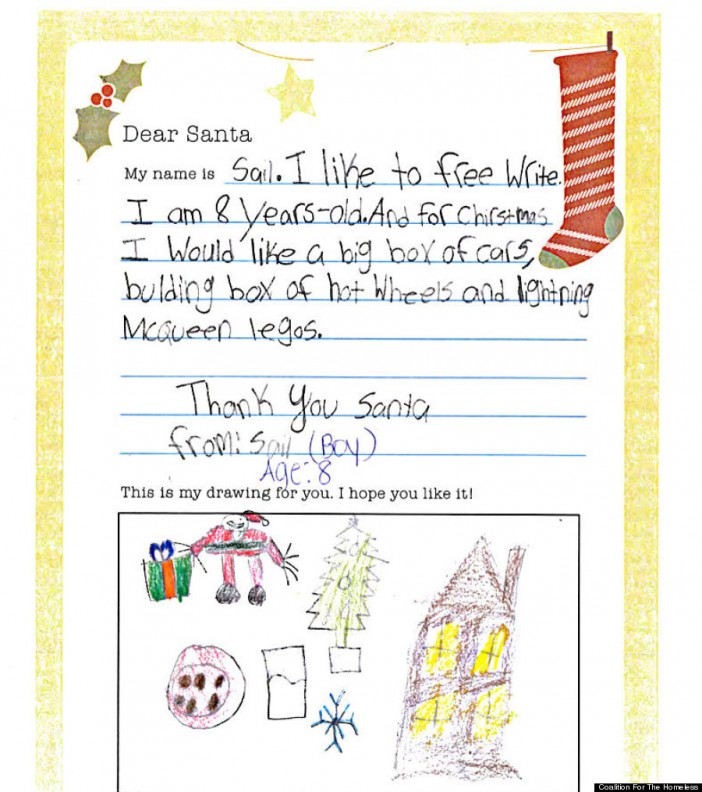 Dear Santa
My name is Sail. I like to free Write.
I am 8 Years-old. And for Chirstmas
I Would like a big box of cars,
bulding box of hot Wheels and lightning
Mcqueen legos.
Thank You Santa
from: Sail (Boy)
Age: 8
This is my drawing for you. I hope you like it!
Coalition For The Homeless